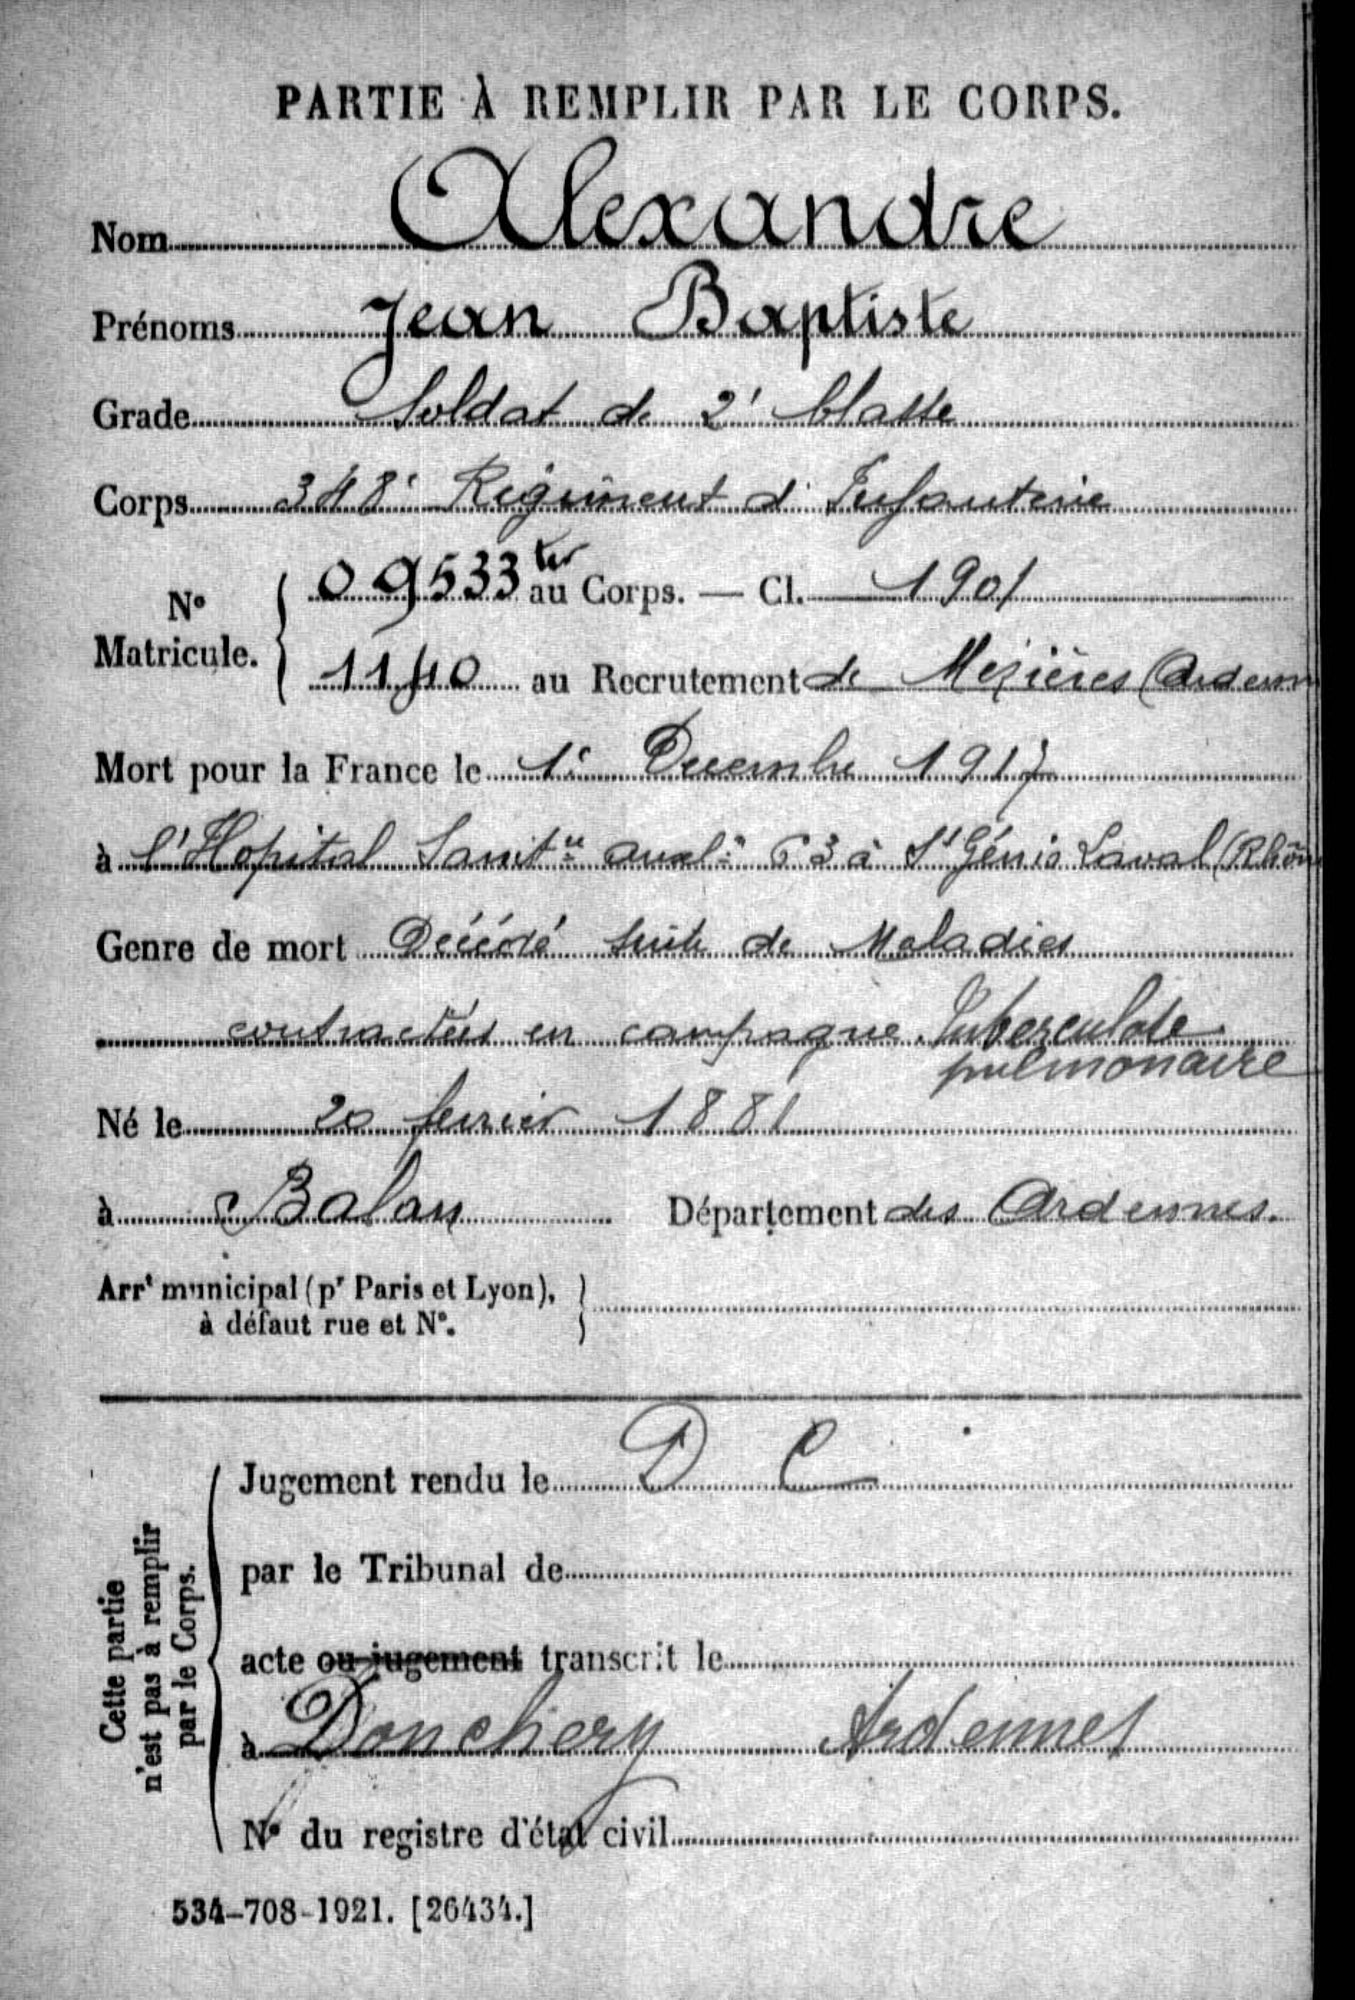 PARTIE À REMPLIR PAR LE CORPS.
Nom Alexandre
Prénoms Jean Baptiste
Grade Soldat de 2e Classe
Corps 348e Régiment d'Infanterie
N° Matricule. { 09533 ter au Corps. — Cl. 1901
1140 au Recrutement de Mezières (Ardenn
Mort pour la France le 1er Decembre 1917
à l'Hopital Sanitre auxre 63 à St Génis Laval (Rhôn
Genre de mort Décédé suite de Maladies
contractées en campagne. Tuberculose
pulmonaire
Né le 20 fevrier 1881
à Balan Département des Ardennes.
Arrt municipal (pr Paris et Lyon),
à défaut rue et N°. }
Cette partie
n'est pas à remplir
par le Corps.
Jugement rendu le D C
par le Tribunal de
acte ou jugement transcrit le
à Donchery Ardennes
N° du registre d'état civil
534-708-1921. [26434.]